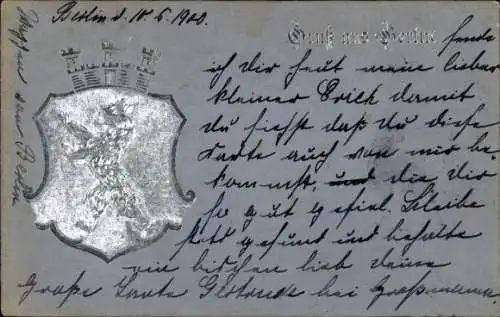 Berlin d. 10.5.1900.
Gruß aus Berlin
Wappen von Berlin
sende
ich dir heut mein lieber
kleiner Erich damit
du siehst daß du diese
Karte auch von mir be
kommst, und die dir
so gut gefiel. Bleibe
stets gesund und behalte
ein bischen lieb deine
große Tante Gertrude bei Großmama.